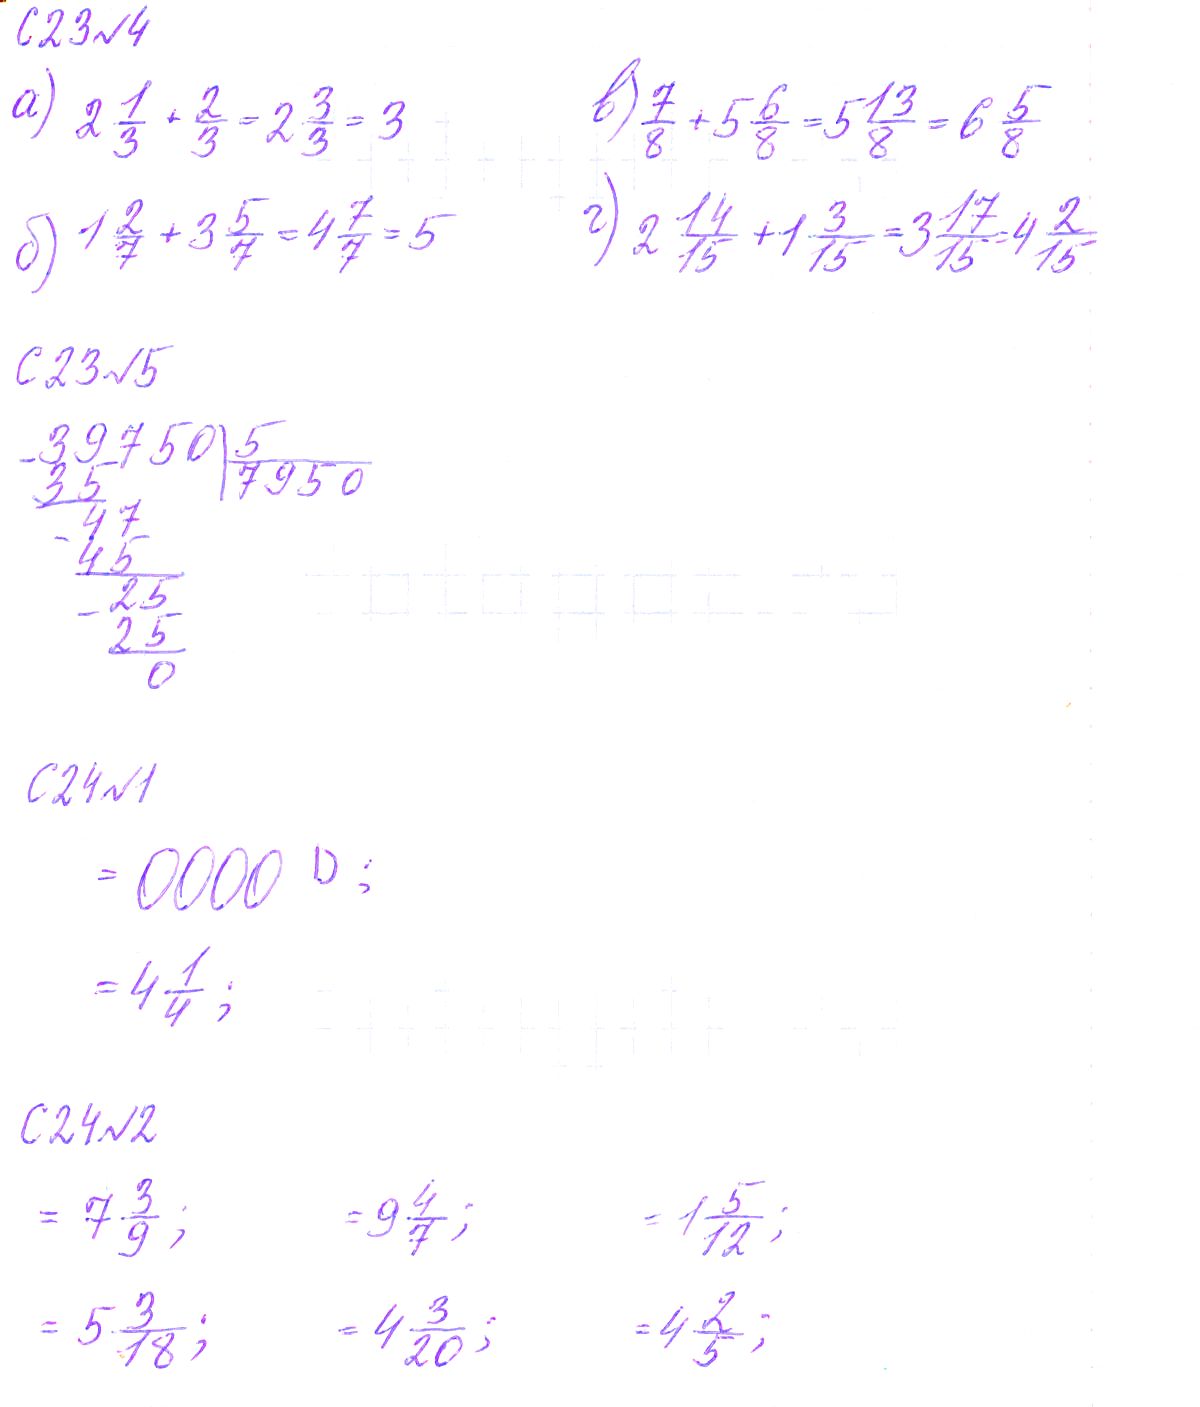 С23№4
а) 2 1/3 + 2/3 = 2 3/3 = 3
в) 7/8 + 5 6/8 = 5 13/8 = 6 5/8
б) 1 2/7 + 3 5/7 = 4 7/7 = 5
г) 2 14/15 + 1 3/15 = 3 17/15 = 4 2/15
С23№5
-39750 | 5
35 7950
-47
45
-25
25
0
С24№1
= 0000 D ;
= 4 1/4 ;
С24№2
= 7 3/9 ; = 9 4/7 ; = 1 5/12 ;
= 5 3/18 ; = 4 3/20 ; = 4 2/5 ;